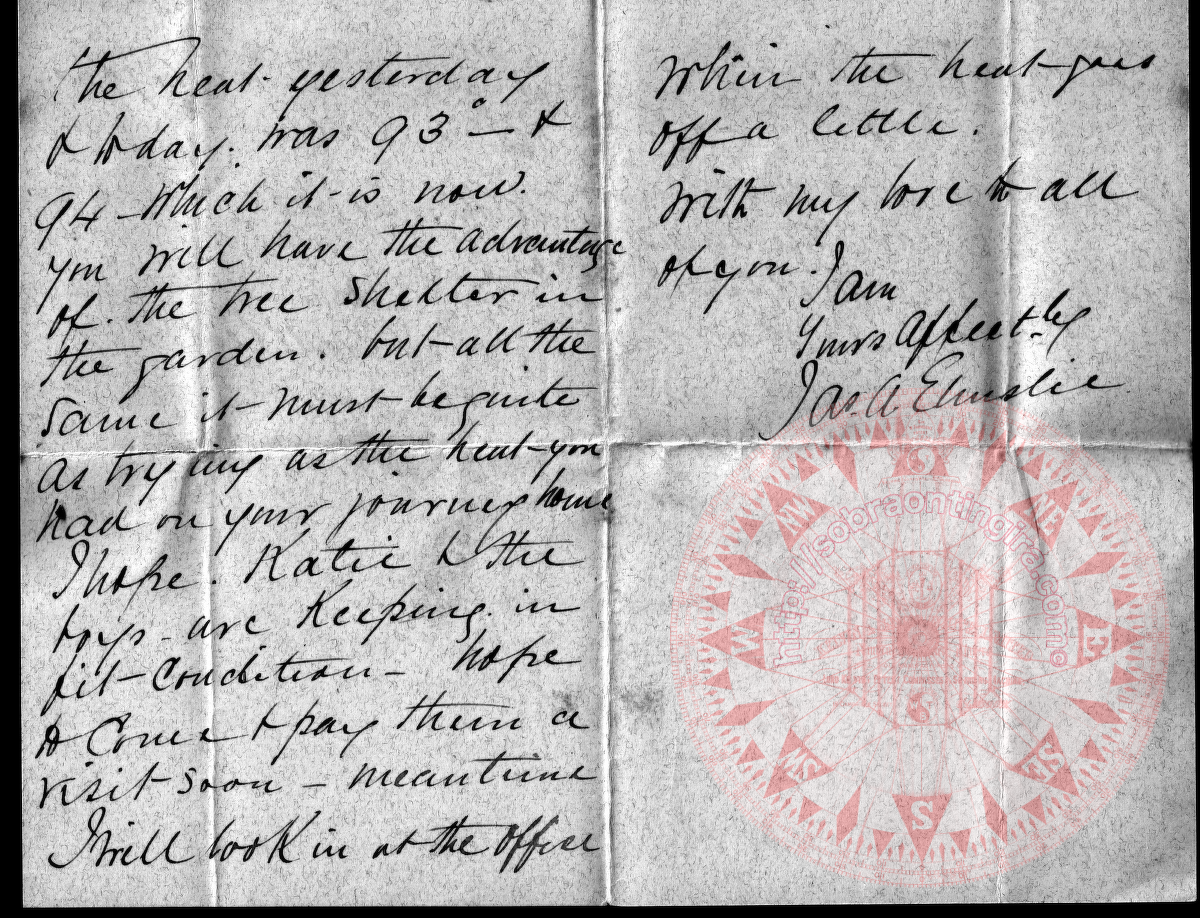 The heat yesterday
& today. was 93° – &
94 – which it is now.
you will have the advantage
of. the tree shelter in
the garden. but all the
same it must be quite
as trying as the heat you
had on your journey home
I hope. Katie & the
boys – are keeping in
fit condition – hope
to come & pay them a
visit soon – meantime
I will look in at the office
when the heat goes
off a little.
with my love to all
of you. I am
Yours Affect.ly
Jas. A. Elmslie
http://sobraontingira.com
NW
NE
W
E
SW
SE
S